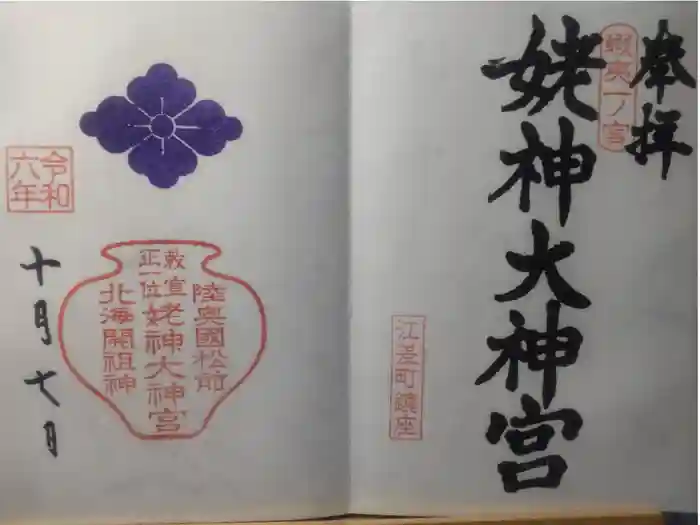 奉拝
蝦夷一ノ宮
姥神大神宮
江差町鎮座
陸奥國松前
敕宣
正一位
姥神大神宮
北海開祖神
令和
六年
十月七日